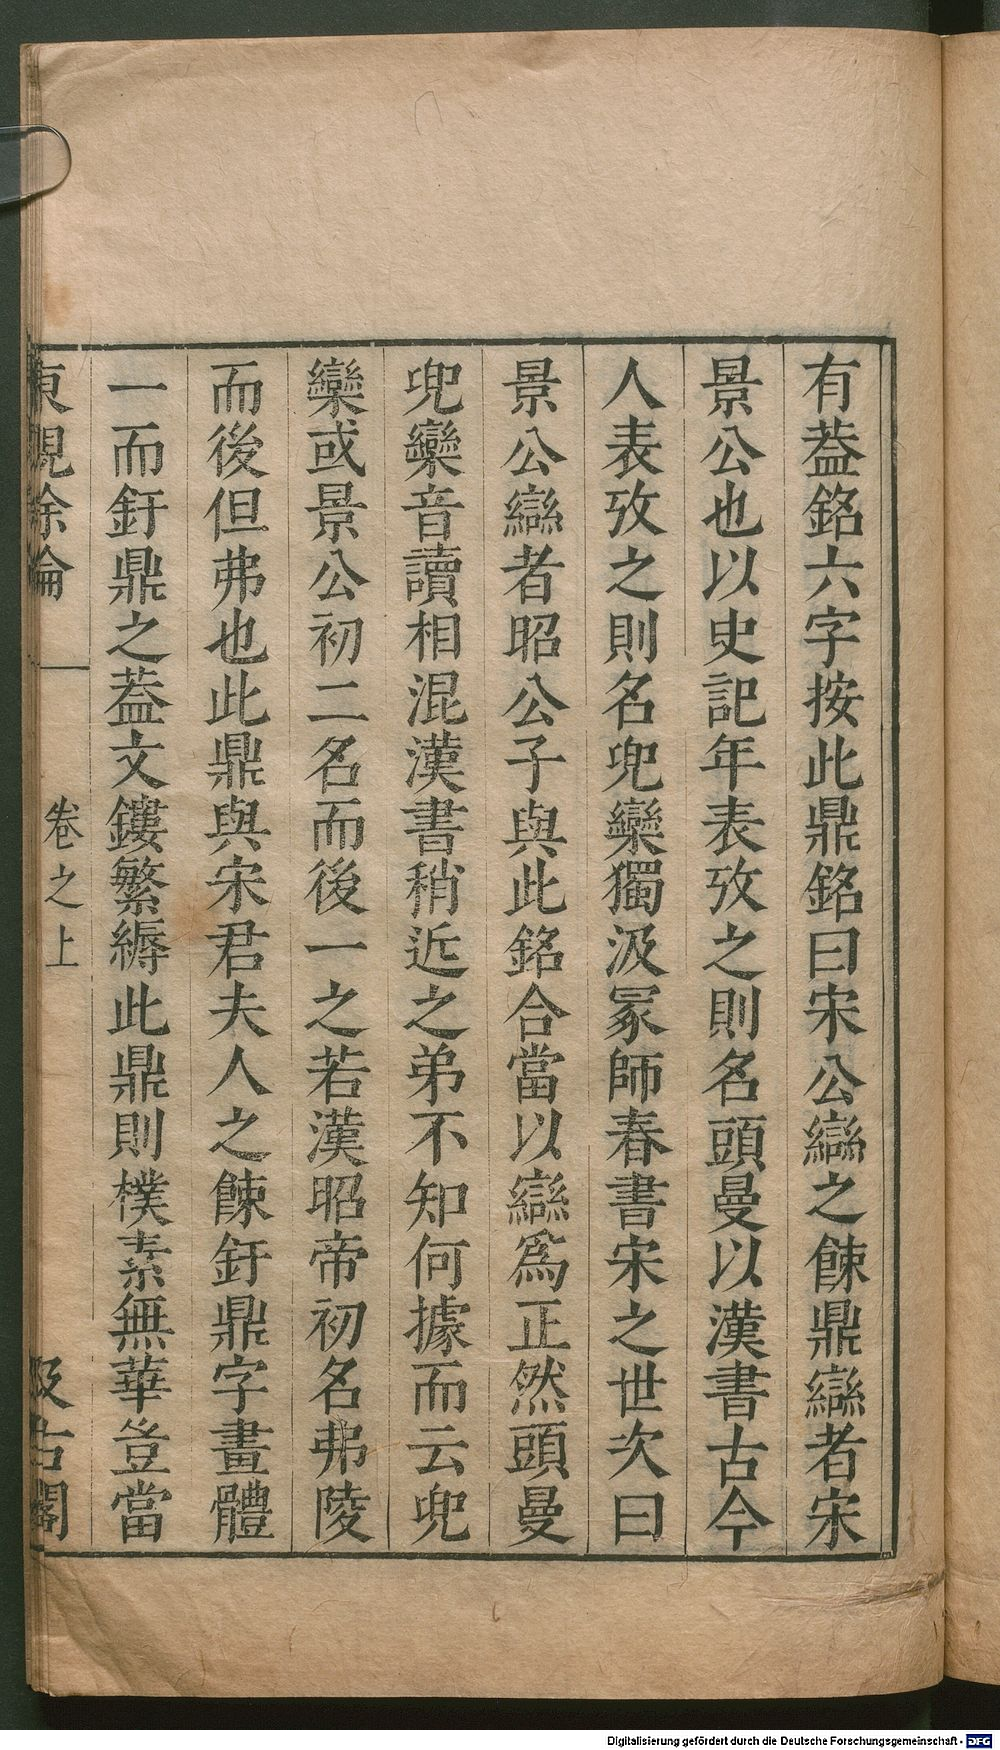 有葢銘六字按此鼎銘曰宋公䜌之餗鼎䜌者宋
景公也以史記年表攷之則名頭曼以漢書古今
人表攷之則名兜欒獨汲冡師春書宋之世次曰
景公䜌者昭公子與此銘合當以䜌爲正然頭曼
兜欒音讀相混漢書稍近之弟不知何據而云兜
欒或景公初二名而後一之若漢昭帝初名弗陵
而後但弗也此鼎與宋君夫人之餗釪鼎字畫體
一而釪鼎之葢文鏤繁縟此鼎則樸素無華豈當
東觀餘論 一 卷之上 汲古閣
Digitalisierung gefördert durch die Deutsche Forschungsgemeinschaft - DFG